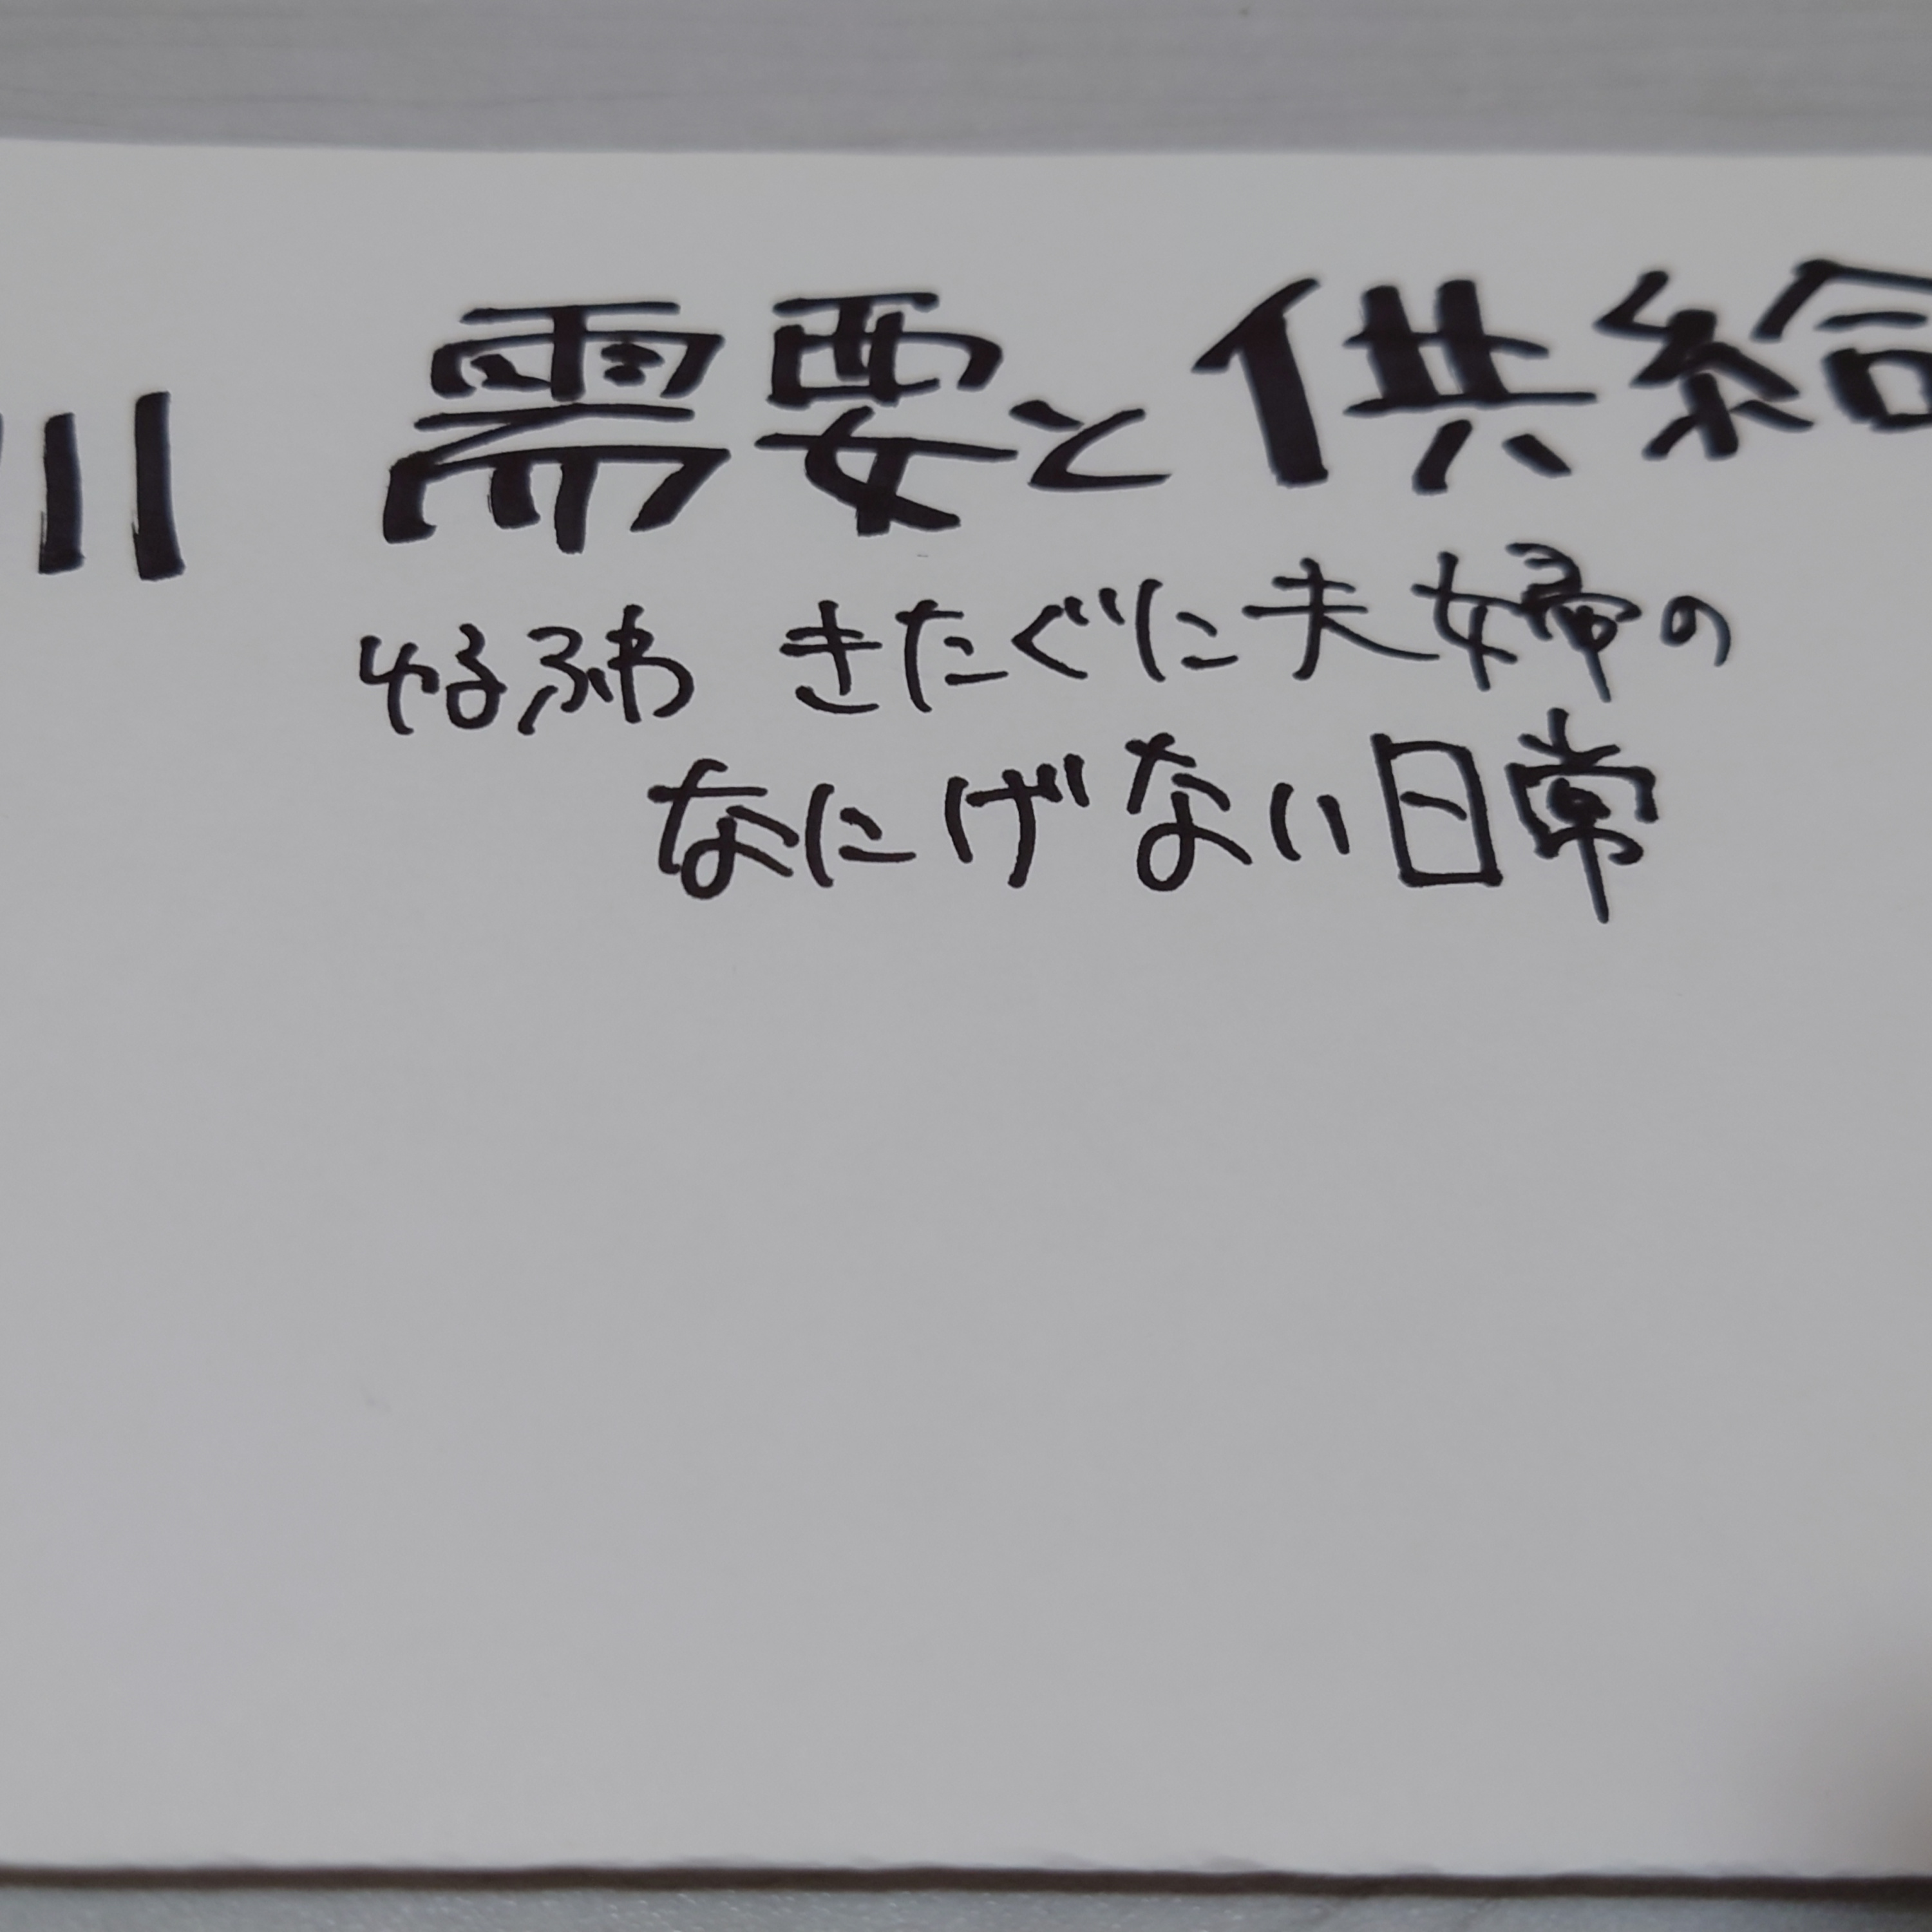 需要と供給
ゆるふわ きたぐに夫婦の
なにげない日常